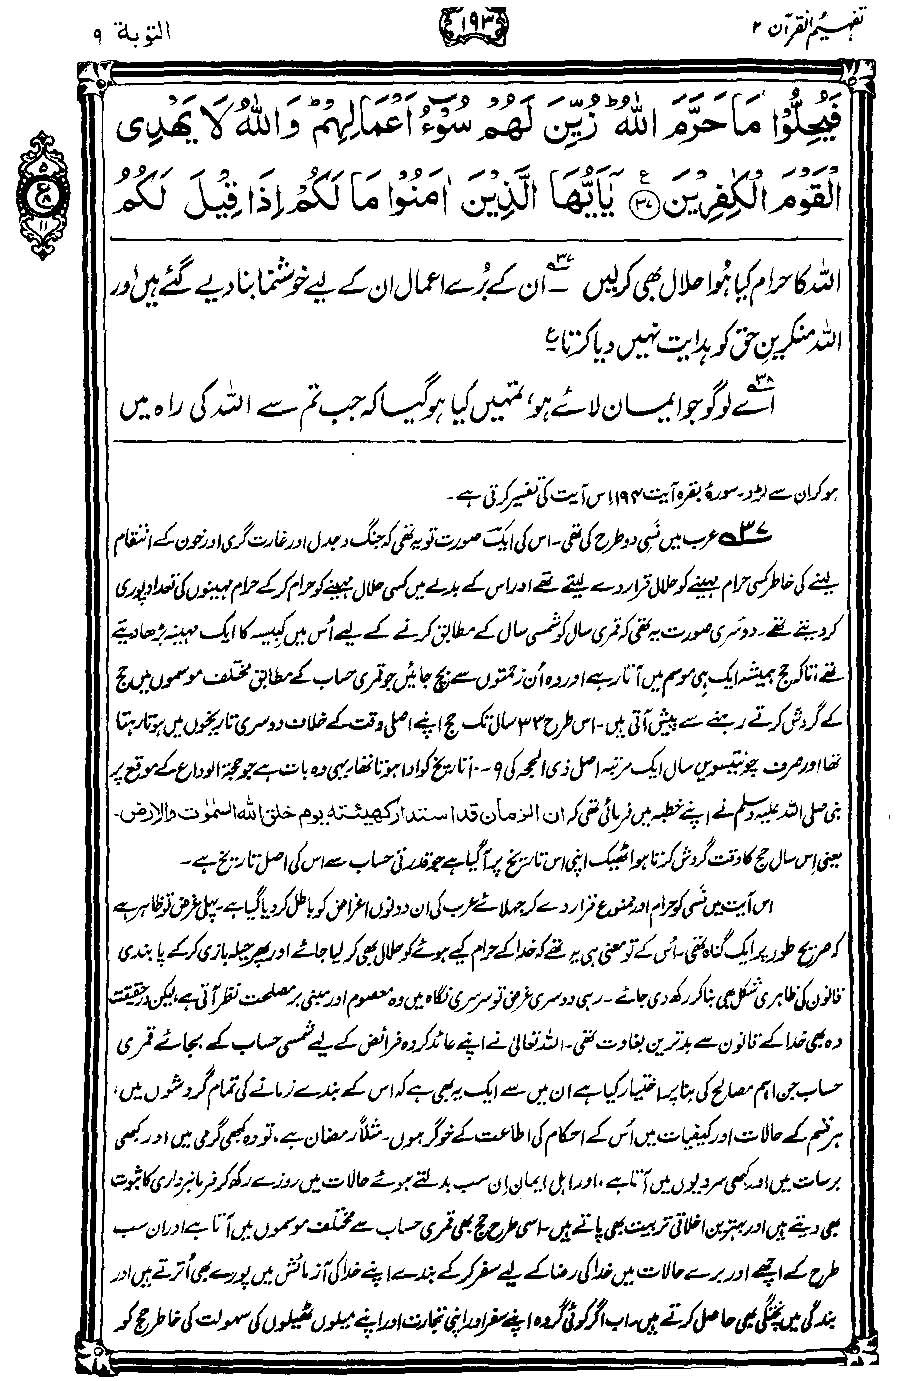 تفہیم القرآن ۲
۱۹۳
التوبۃ ۹
فَيُحِلُّوْا مَا حَرَّمَ اللّٰهُ ؕ زُيِّنَ لَهُمْ سُوْٓءُ اَعْمَالِهِمْ ؕ وَاللّٰهُ لَا يَهْدِى
الْقَوْمَ الْكٰفِرِيْنَ ﴿۳۷﴾ ع يٰۤاَيُّهَا الَّذِيْنَ اٰمَنُوْا مَا لَكُمْ اِذَا قِيْلَ لَكُمُ
۵
ع
۸
۱۱
اللہ کا حرام کیا ہُوا حلال بھی کر لیں ۳۷؎۔ ان کے بُرے اعمال ان کے لیے خوشنما بنا دیے گئے ہیں اور
اللہ منکرینِ حق کو ہدایت نہیں دیا کرتا ع
۳۸؎ اے لوگو جو ایمان لائے ہو، تمہیں کیا ہو گیا کہ جب تم سے اللہ کی راہ میں
ہو کر ان سے لڑو۔ سورۂ بقرہ آیت ۱۹۴ اس آیت کی تفسیر کرتی ہے۔
۳۷؎ عرب میں نسی دو طرح کی تھی۔ اس کی ایک صورت تو یہ تھی کہ جنگ و جدل اور غارت گری اور خون کے انتقام
لینے کی خاطر کسی حرام مہینے کو حلال قرار دے لیتے تھے اور اس کے بدلے میں کسی حلال مہینے کو حرام کر کے حرام مہینوں کی تعداد پوری
کر دیتے تھے۔ دوسری صورت یہ تھی کہ قمری سال کو شمسی سال کے مطابق کرنے کے لیے اُس میں کبیسہ کا ایک مہینہ بڑھا دیتے
تھے، تاکہ حج ہمیشہ ایک ہی موسم میں آتا رہے اور وہ اُن زحمتوں سے بچ جائیں جو قمری حساب کے مطابق مختلف موسموں میں حج
کے گردش کرتے رہنے سے پیش آتی ہیں۔ اس طرح ۳۳ سال تک حج اپنے اصلی وقت کے خلاف دوسری تاریخوں میں ہوتا رہتا
تھا اور صرف چونتیسویں سال ایک مرتبہ اصل ذی الحجہ کی ۹۔۱۰ تاریخ کو ادا ہوتا تھا۔ یہی وہ بات ہے جو حجۃ الوداع کے موقع پر
نبی صلی اللہ علیہ وسلم نے اپنے خطبہ میں فرمائی تھی کہ ان الزمان قد استدار کھیئتہ یوم خلق اللہ السمٰوٰت والارض۔
یعنی اس سال حج کا وقت گردش کرتا ہوا ٹھیک اپنی اس تاریخ پر آگیا ہے جو قدرتی حساب سے اس کی اصل تاریخ ہے۔
اس آیت میں نسی کو حرام اور ممنوع قرار دے کر جہلائے عرب کی ان دونوں اغراض کو باطل کر دیا گیا ہے۔ پہلی غرض تو ظاہر ہے
کہ صریح طور پر ایک گناہ تھی۔ اُس کے تو معنی ہی یہ تھے کہ خدا کے حرام کیے ہوئے کو حلال بھی کر لیا جائے اور پھر حیلہ بازی کر کے پابندی
قانون کی ظاہری شکل بھی بنا کر رکھ دی جائے۔ رہی دوسری غرض تو سرسری نگاہ میں وہ معصوم اور مبنی بر مصلحت نظر آتی ہے، لیکن درحقیقت
وہ بھی خدا کے قانون سے بدترین بغاوت تھی۔ اللہ تعالیٰ نے اپنے عائد کردہ فرائض کے لیے شمسی حساب کے بجائے قمری
حساب جن اہم مصالح کی بنا پر اختیار کیا ہے ان میں سے ایک یہ بھی ہے کہ اس کے بندے زمانے کی تمام گردشوں میں،
ہر قسم کے حالات اور کیفیات میں اُس کے احکام کی اطاعت کے خوگر ہوں۔ مثلاً رمضان ہے، تو وہ کبھی گرمی میں اور کبھی
برسات میں اور کبھی سردیوں میں آتا ہے، اور اہل ایمان ان سب بدلتے ہوئے حالات میں روزے رکھ کر فرمانبرداری کا ثبوت
بھی دیتے ہیں اور بہترین اخلاقی تربیت بھی پاتے ہیں۔ اسی طرح حج بھی قمری حساب سے مختلف موسموں میں آتا ہے اور ان سب
طرح کے اچھے اور برے حالات میں خدا کی رضا کے لیے سفر کر کے بندے اپنے خدا کی آزمائش میں پورے بھی اُترتے ہیں اور
بندگی میں پختگی بھی حاصل کرتے ہیں۔ اب اگر کوئی گروہ اپنے سفر اور اپنی تجارت اور اپنے میلوں ٹھیلوں کی سہولت کی خاطر حج کو